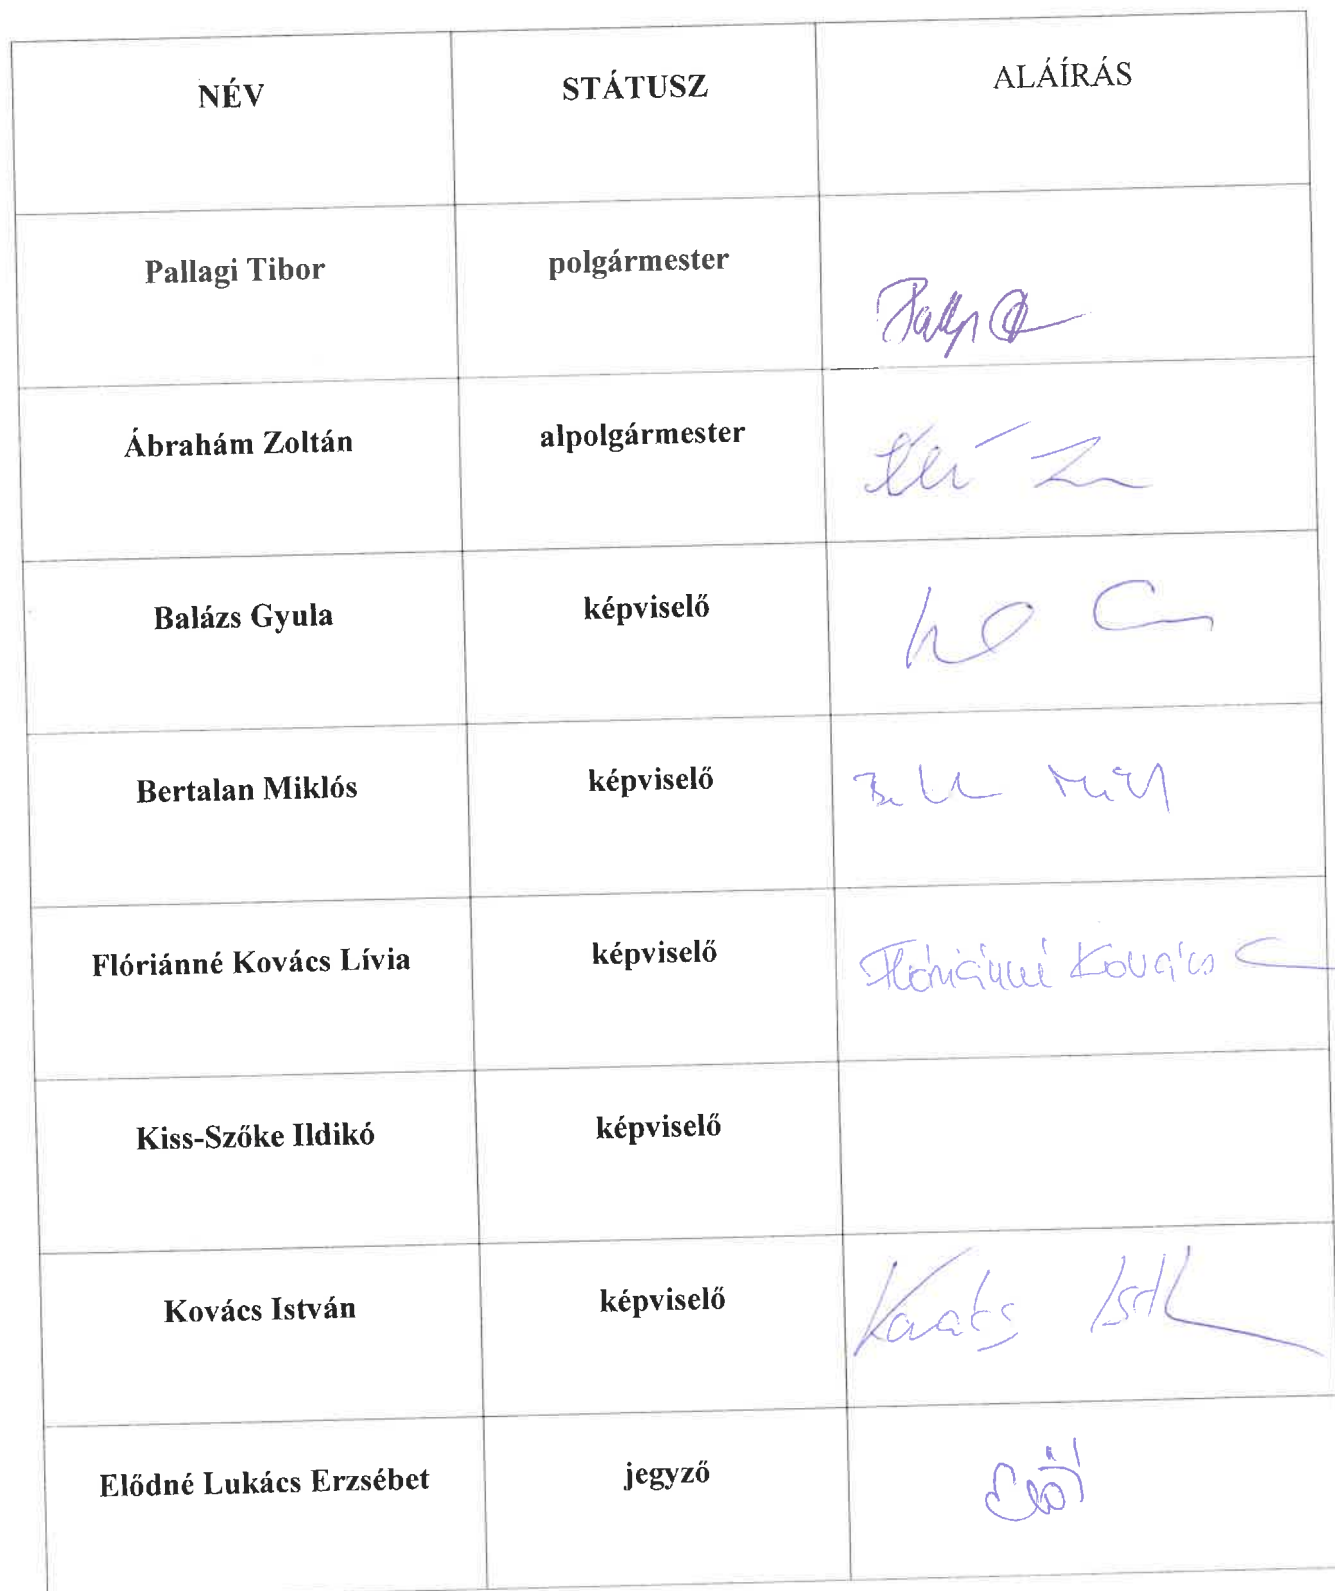 NÉV STÁTUSZ ALÁÍRÁS
Pallagi Tibor polgármester
Ábrahám Zoltán alpolgármester
Balázs Gyula képviselő
Bertalan Miklós képviselő
Flóriánné Kovács Lívia képviselő Flóriánné Kovács
Kiss-Szőke Ildikó képviselő
Kovács István képviselő Kovács
Elődné Lukács Erzsébet jegyző